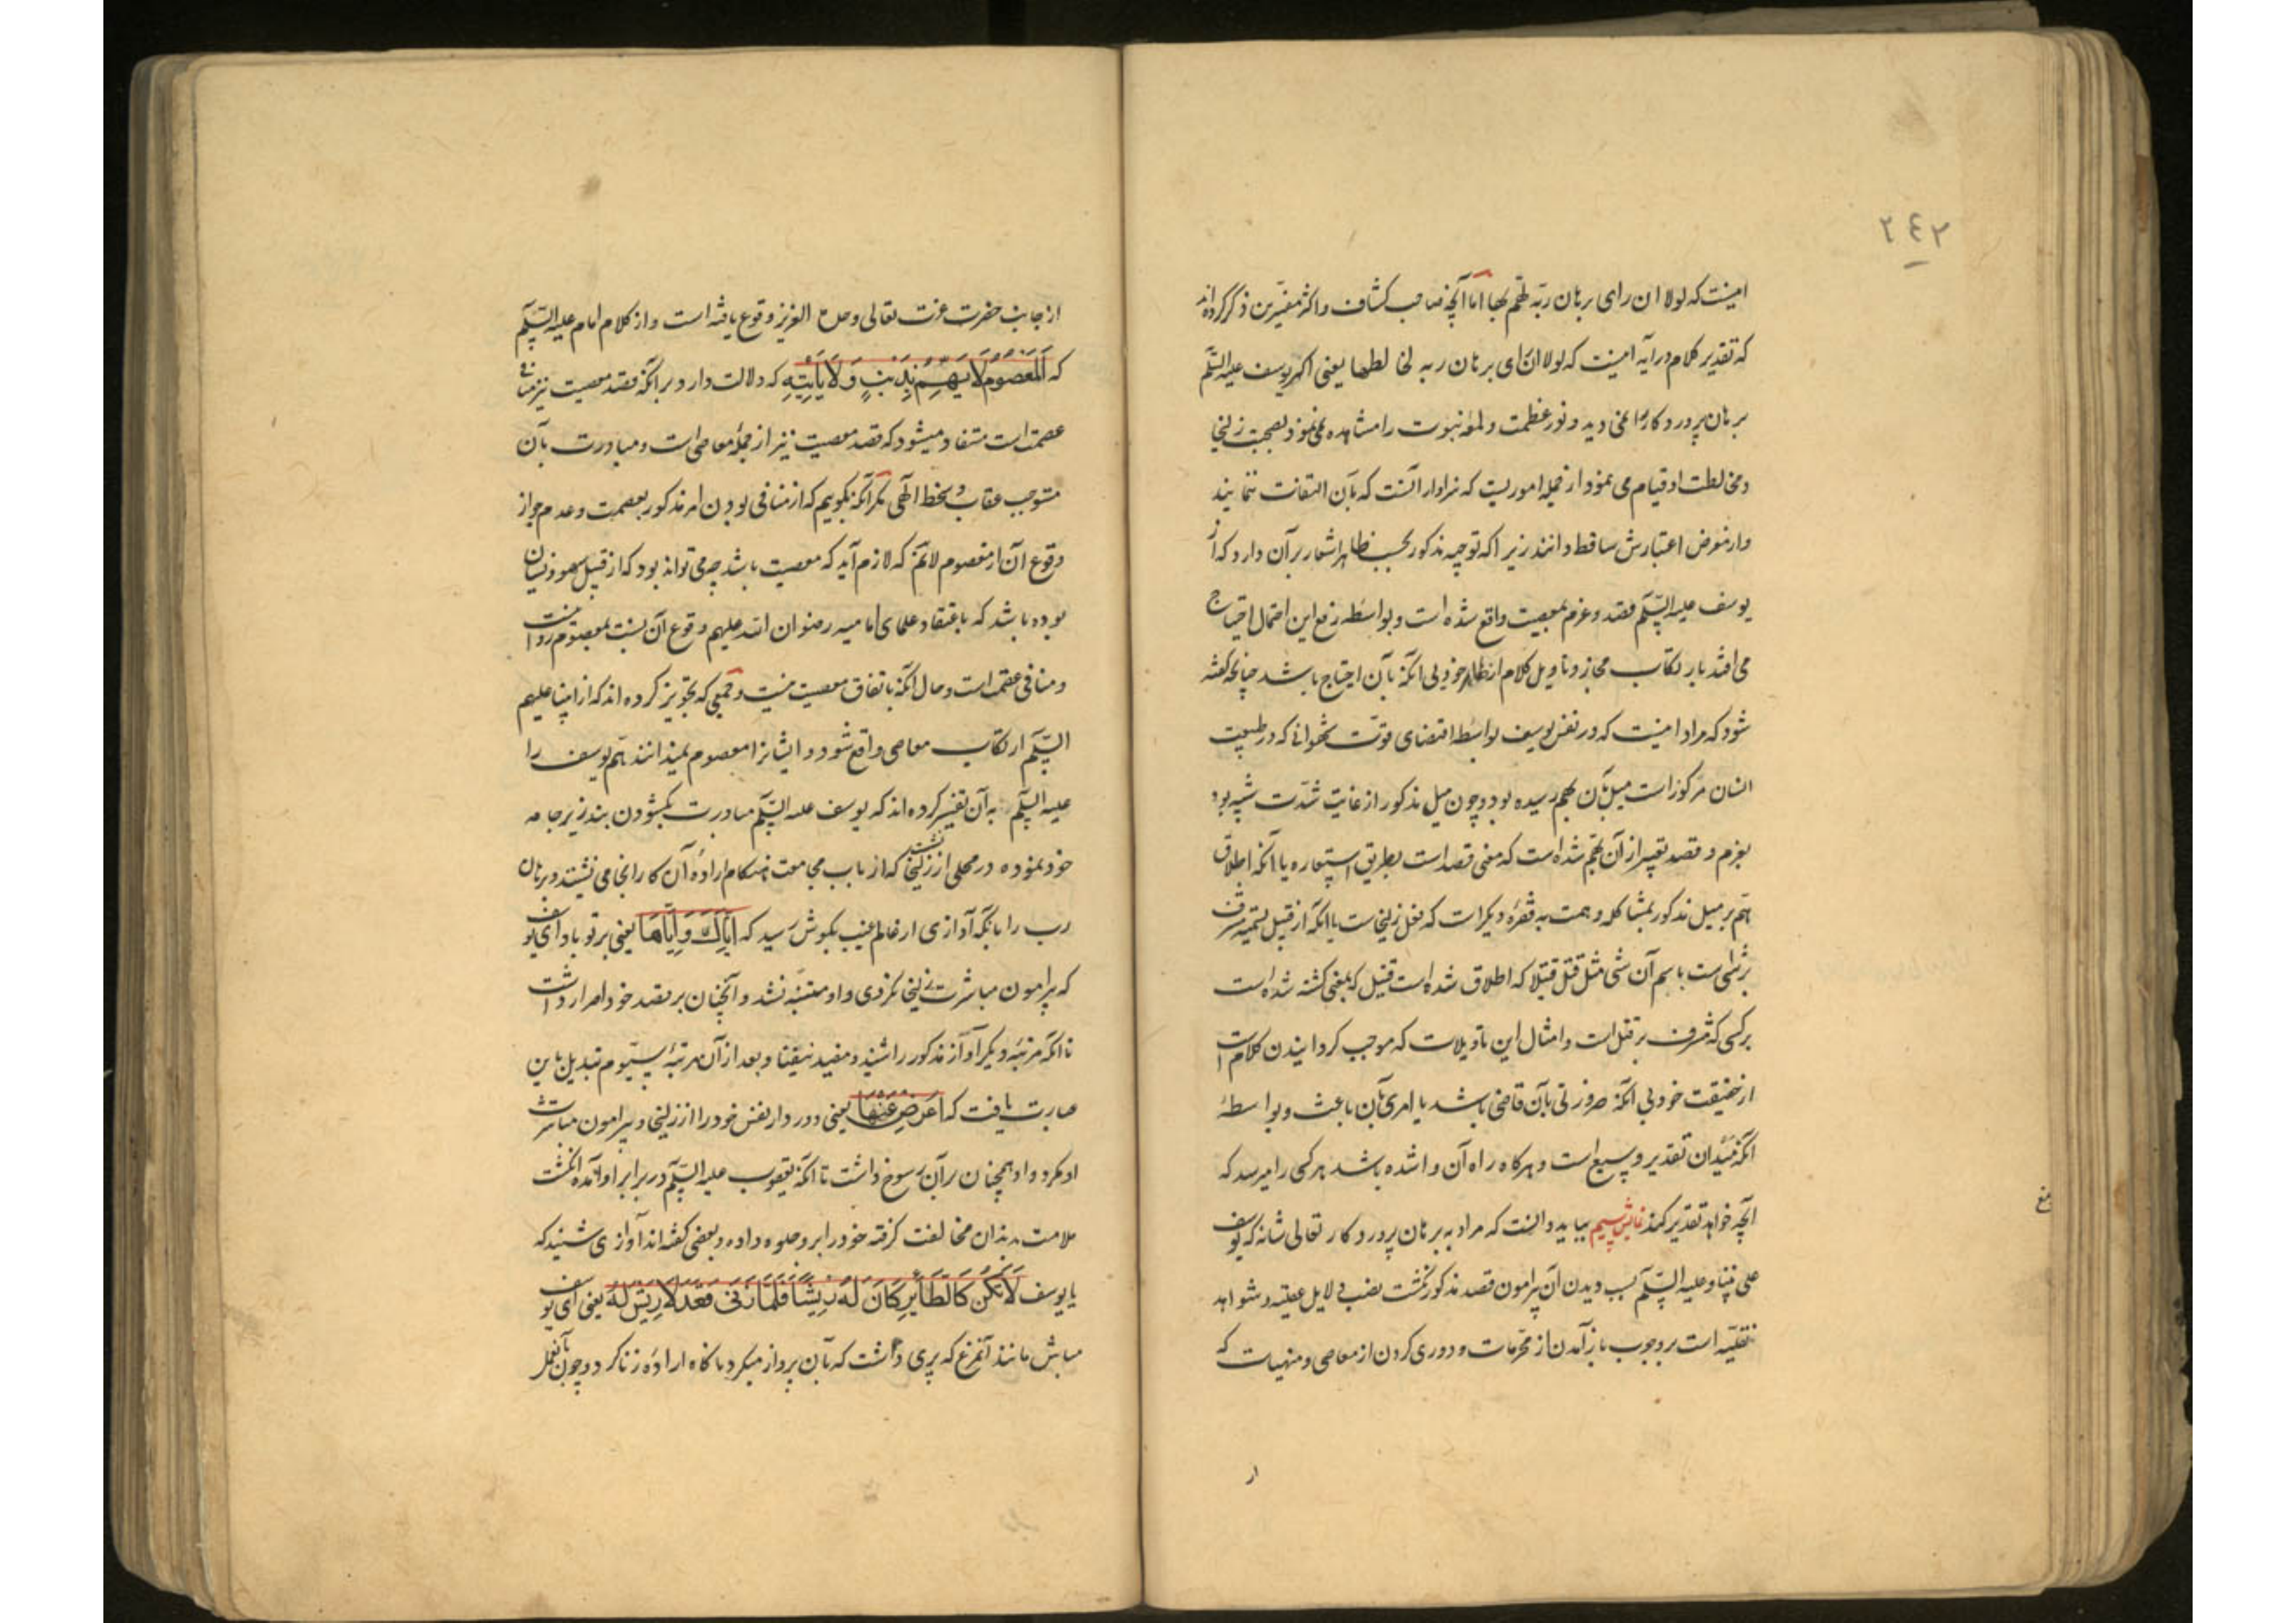 ۲٤۲
اینست که لولا ان رای برهان ربه لهم بها اما آنچه صاحب کشاف و اکثر مفسرین ذکر کرده‌اند
که تقدیر کلام در آیه اینست که لولا ان رای برهان ربه لخالطها یعنی اگر یوسف علیه السلم
برهان پروردکار را نمی دید و نور عظمت و لمعه نبوت را مشاهده نمی نمود بصحبت زلیخا
و مخالطت او قیام می نمود از جمله اموریست که سزاوار آنست که بآن التفات ننمایند
و از معرض اعتبارش ساقط دانند زیرا که توجیه مذکور بحسب ظاهر اشعار بر آن دارد که از
یوسف علیه السلم قصد و عزم بمعصیت واقع شده است و بواسطه رفع این احتمال احتیاج
می افتد بارتکاب مجاز و تاویل کلام از ظاهر خود بی انکه بآن احتیاج باشد چنانچه کفته
شود که مراد اینست که در نفس یوسف بواسطه اقتضای قوت شهوانی که در طبیعت
انسان مرکوز است میل بآن بهم رسیده بود و چون میل مذکور از غایت شدت شبیه بود
بعزم و قصد تعبیر از آن بهم شده است که معنی قصد است بطریق استعاره یا آنکه اطلاق
هم بر میل مذکور بمشاکله و همت به فقره دیکر است که فعل زلیخاست یا انکه از قبیل تسمیه مشرف
بر شی است باسم آن شی مثل قتل قتیلا که اطلاق شده است قتیل که بمعنی کشته شده است
بر کسی که مشرف بر قتل است و امثال این تاویلات که موجب کردانیدن کلام است
از حقیقت خود بی انکه ضرورتی بآن قاضی باشد یا امری بآن باعث و بواسطهٔ
انکه میدان تقدیر وسیع است و هرکاه راه آن وا شده باشد هر کسی را میرسد که
آنچه خواهد تقدیر کند بباید دانست که مراد به برهان پروردکار تعالی شانه که یوسف
علی نبینا و علیه السلم بسبب دیدن آن پیرامون قصد مذکور نکشت نصب دلایل عقلیه و شواهد
نقلیه است بر وجوب باز آمدن از محرمات و دوری کردن از معاصی و منهیات که
از
از جانب حضرت عزت تعالی و جل العزیز وقوع یافته است و از کلام امام علیه السلم
که اَلْمَعْصُومُ لَا یَهُمُّ بِذَنْبٍ وَ لَا یَأْتِیهِ که دلالت دارد بر انکه قصد معصیت نیز منافی
عصمت است مستفاد میشود که قصد معصیت نیز از جمله معاصی است و مبادرت بآن
مستوجب عقاب و سخط الهی مکر آنکه بکوییم که از منافی بودن امر مذکور بعصمت و عدم جواز
وقوع آن از معصوم لانم که لازم آید که معصیت باشد چه می تواند بود که از قبیل سهو و نسیان
بوده باشد که باعتقاد علمای امامیه رضوان الله علیهم وقوع آن نسبت بمعصوم روا نیست
و منافی عصمت است و حال آنکه باتفاق معصیت نیست و جمعی که تجویز کرده اند که از انبیا علیهم
السلم ارتکاب معاصی واقع شود و ایشانرا معصوم نمیدانند هم یوسف را
علیه السلم به آن تفسیر کرده اند که یوسف علیه السلم مبادرت بکشودن بند زیر جامه
خود نموده در محلی از زلیخا که ارباب مجامعت هنکام ارادهٔ آن کار انجا می نشینند نشست و برهان
رب را بانکه آوازی از عالم غیب بکوش رسید که اِیَّاکَ وَ اِیَّاهَا یعنی بر تو باد ای یوسف
که پیرامون مباشرت زلیخا نکردی و او متنبه نشد و آنچنان بر قصد خود اصرار داشت
تا انکه مرتبهٔ دیکر آواز مذکور را شنید و مفید نیفتاد و بعد از آن مرتبهٔ سیّوم تبدیل باین
عبارت یافت که اَعْرِضْ عَنْهَا یعنی دور دار نفس خود را از زلیخا و پیرامون مباشرت
او مکرد و او همچنان بر آن رسوخ داشت تا آنکه یعقوب علیه السلم در برابر او آمده انکشت
ملامت بدندان مخالفت کرفته خود را برو جلوه داده و بعضی کفته اند آوازی شنید که
یا یوسف لَا تَکُنْ کَالطَّایِرِ کَانَ لَهُ رِیشًا فَلَمَّا زَنَی قَعَدَ لَا رِیشَ لَهُ یعنی ای یوسف
مباش مانند آنمرغ که پری داشت که بآن پرواز میکرد ناکاه ارادهٔ زنا کرد و چون بآن فعل